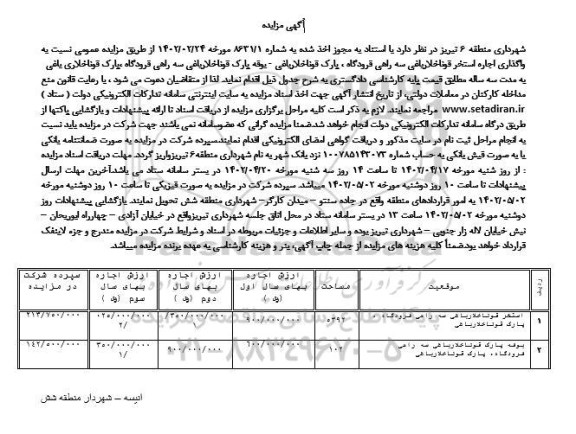 آگهی مزایده
شهرداری منطقه ۶ تبریز در نظر دارد با استناد به مجوز اخذ شده به شماره ۸۶۳۱/۱ مورخه ۱۴۰۲/۰۲/۲۴ از طریق مزایده عمومی نسبت به
واگذاری اجاره استخر قوناخلارباغی سه راهی فرودگاه ، پارک قوناخلارباغی - بوفه پارک قوناخلارباغی سه راهی فرودگاه ،پارک قوناخلاری باغی
به مدت سه ساله مطابق قیمت پایه کارشناسی دادگستری به شرح جدول ذیل اقدام نماید. لذا از متقاضیان دعوت می شود ، با رعایت قانون منع
مداخله کارکنان در معاملات دولتی، از تاریخ انتشار آگهی جهت اخذ اسناد مزایده به سایت اینترنتی سامانه تدارکات الکترونیکی دولت ( ستاد )
www.setadiran.ir مراجعه نمایند. لازم به ذکر است کلیه مراحل برگزاری مزایده از دریافت اسناد تا ارائه پیشنهادات و بازگشایی پاکتها از
طریق درگاه سامانه تدارکات الکترونیکی دولت انجام خواهد شد.ضمنا مزایده گرانی که عضوسامانه نمی باشند جهت شرکت در مزایده باید نسبت
به انجام مراحل ثبت نام در سایت مذکور و دریافت گواهی امضای الکترونیکی اقدام نمایند.سپرده شرکت در مزایده به صورت ضمانتنامه بانکی
یا به صورت فیش بانکی به حساب شماره ۱۰۰۷۸۵۱۴۳۰۷۳ نزد بانک شهر به نام شهرداری منطقه۶ تبریزواریز گردد. مهلت دریافت اسناد مزایده
: از روز شنبه مورخه ۱۴۰۲/۰۴/۱۷ تا ساعت ۱۴ روز سه شنبه مورخه ۱۴۰۲/۰۴/۲۰ در بستر سامانه ستاد می باشد.آخرین مهلت ارسال
پیشنهادات تا ساعت ۱۰ روز دوشنبه مورخه ۱۴۰۲/۰۵/۰۲ میباشد. سپرده شرکت در مزایده به صورت فیزیکی تا ساعت ۱۰ روز دوشنبه مورخه
۱۴۰۲/۰۵/۰۲ به امور قراردادهای منطقه واقع در جاده سنتو – میدان کارگر– شهرداری منطقه شش تحویل نمایند. بازگشایی پیشنهادات روز
دوشنبه مورخه ۱۴۰۲/۰۵/۰۲ ساعت ۱۳ در بستر سامانه ستاد در محل اتاق جلسه شهرداری تبریزواقع در خیابان آزادی – چهارراه ابوریحان –
نبش خیابان لاله زار جنوبی – شهرداری تبریز بوده و سایر اطلاعات و جزئیات مربوطه در اسناد و شرایط شرکت در مزایده مندرج و جزء لاینفک
قرارداد خواهد بود.ضمناً کلیه هزینه های مزایده از جمله چاپ آگهی،بنر و هزینه کارشناسی به عهده برنده مزایده میباشد.
ردیف موقعیت مساحت ارزش اجاره بهای سال اول (ریال) ارزش اجاره بهای سال دوم (ریال) ارزش اجاره بهای سال سوم (ریال) سپرده شرکت در مزایده
۱ استخر قوناخلارباغی سه راهی فرودگاه ، پارک قوناخلارباغی ۵۳۹۲ ۹۰۰/۰۰۰/۰۰۰ ۱/۳۵۰/۰۰۰/۰۰۰ ۲/۰۲۵/۰۰۰/۰۰۰ ۲۱۳/۷۵۰/۰۰۰
۲ بوفه پارک قوناخلارباغی سه راهی فرودگاه، پارک قوناخلارباغی ۱۰۲ ۶۰۰/۰۰۰/۰۰۰ ۹۰۰/۰۰۰/۰۰۰ ۱/۳۵۰/۰۰۰/۰۰۰ ۱۴۲/۵۰۰/۰۰۰
۰۲۱-۸۸۳۴۹۶۷۰-۵
انیسه – شهردار منطقه شش